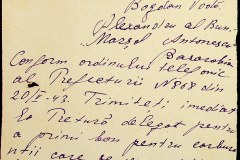 Bogdan Vodă
Alexandru cel Bun,
Marșal Antonescu
Basarabia
Conform ordinului telefonic
al Prefecturii N 868 din
20/I-43. Trimiteți imediat
la Pretură delegat pentru
a primi bon pentru carbu
nții care